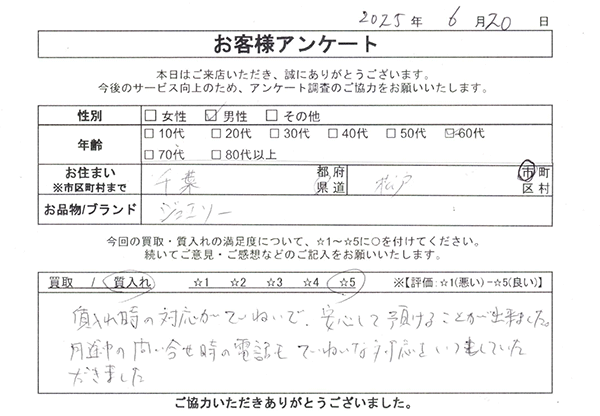 2025年 6月20日
お客様アンケート
本日はご来店いただき、誠にありがとうございます。
今後のサービス向上のため、アンケート調査のご協力をお願いいたします。
性別 □女性 ☑男性 □その他
年齢 □10代 □20代 □30代 □40代 □50代 ☑60代
□70代 □80代以上
お住まい ※市区町村まで 千葉 都府県道 松戸 市町区村
お品物/ブランド ジュエリー
今回の買取・質入れの満足度について、☆1～☆5に○を付けてください。
続いてご意見・ご感想などのご記入をお願いいたします。
買取 / 質入れ ☆1 ☆2 ☆3 ☆4 ☆5 ※【評価:☆1(悪い)－☆5(良い)】
質入れ時の対応がていねいで、安心して預けることが出来ました。
月途中の問い合せ時の電話も ていねいな対応をいつもしていた
だきました
ご協力いただきありがとうございました。